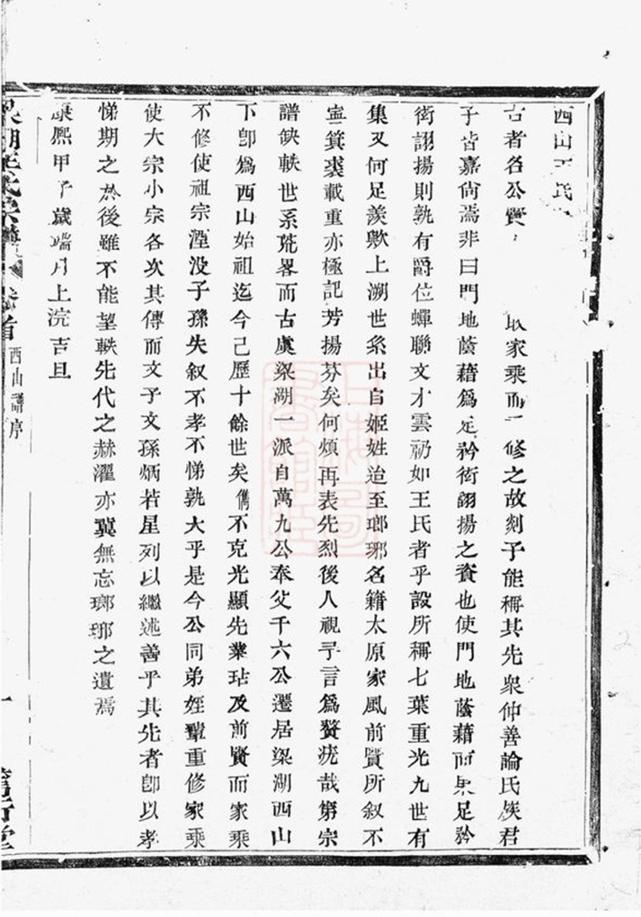 西山王氏
古者名公賢 取家乘而一修之故剡子能稱其先衆仲善論氏族君
子皆嘉尚焉非曰門地蔭藉爲足矜衒詡揚之資也使門地蔭藉而果足矜
衒詡揚則孰有爵位蟬聯文才雲礽如王氏者乎設所稱七葉重光九世有
集又何足羨歟上溯世系出自姬姓迨至瑯琊名籍太原家風前賢所叙不
啻箕裘載重亦極記芳揚芬矣何煩再表先烈後人視予言爲贅疣哉第宗
譜缺軼世系荒畧而古虞梁湖一派自萬九公奉父千六公遷居梁湖西山
下卽爲西山始祖迄今已歷十餘世矣儁不克光顯先業玷及前賢而家乘
不修使祖宗湮没子孫失叙不孝不悌孰大乎是今公同弟姪輩重修家乘
使大宗小宗各次其傳而文子文孫炳若星列以繼述善乎其先者卽以孝
悌期之於後雖不能望軼先代之赫濯亦冀無忘瑯琊之遺焉
康熙甲子歲端月上浣吉旦
梁湖王氏宗譜 卷首 西山譜序 一